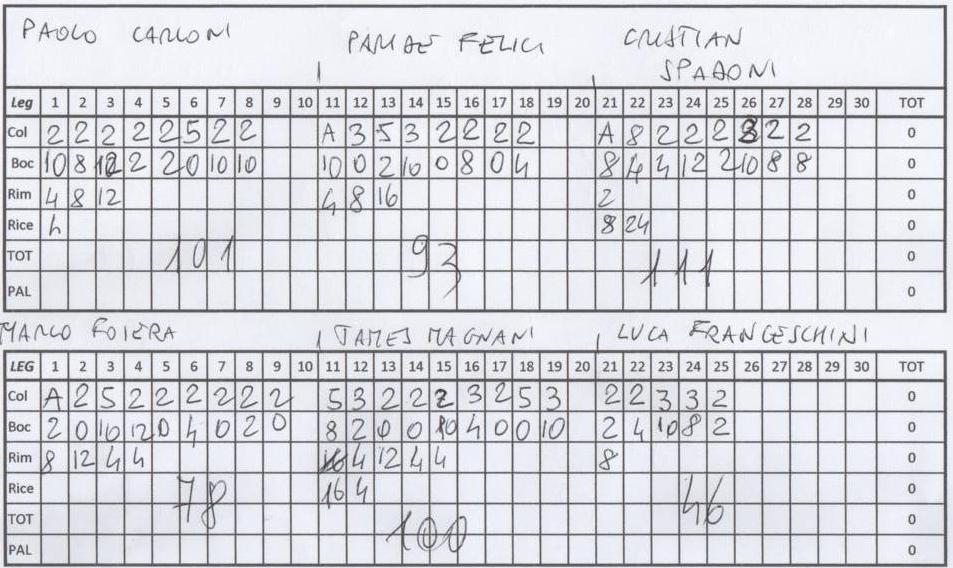 PAOLO CARLONI PARIDE FELICI CRISTIAN
SPADONI
Leg 1 2 3 4 5 6 7 8 9 10 11 12 13 14 15 16 17 18 19 20 21 22 23 24 25 26 27 28 29 30 TOT
Col 2 2 2 2 2 5 2 2 A 3 5 3 2 2 2 2 A 8 2 2 2 3 2 2 0
Boc 10 8 12 2 2 0 10 10 10 0 2 10 0 8 0 4 8 4 4 12 2 10 8 8 0
Rim 4 8 12 4 8 16 2 0
Rice 4 8 24 0
TOT 101 93 111 0
PAL 0
MARCO FOIERA JAMES MAGNANI LUCA FRANCESCHINI
LEG 1 2 3 4 5 6 7 8 9 10 11 12 13 14 15 16 17 18 19 20 21 22 23 24 25 26 27 28 29 30 TOT
Col A 2 5 2 2 2 2 2 2 5 3 2 2 2 3 2 5 3 2 2 3 3 2 0
Boc 2 0 10 12 0 4 0 2 0 8 2 0 0 10 4 0 0 10 2 4 10 8 2 0
Rim 8 12 4 4 4 12 4 4 8 0
Rice 78 16 4 46 0
TOT 100 0
PAL 0